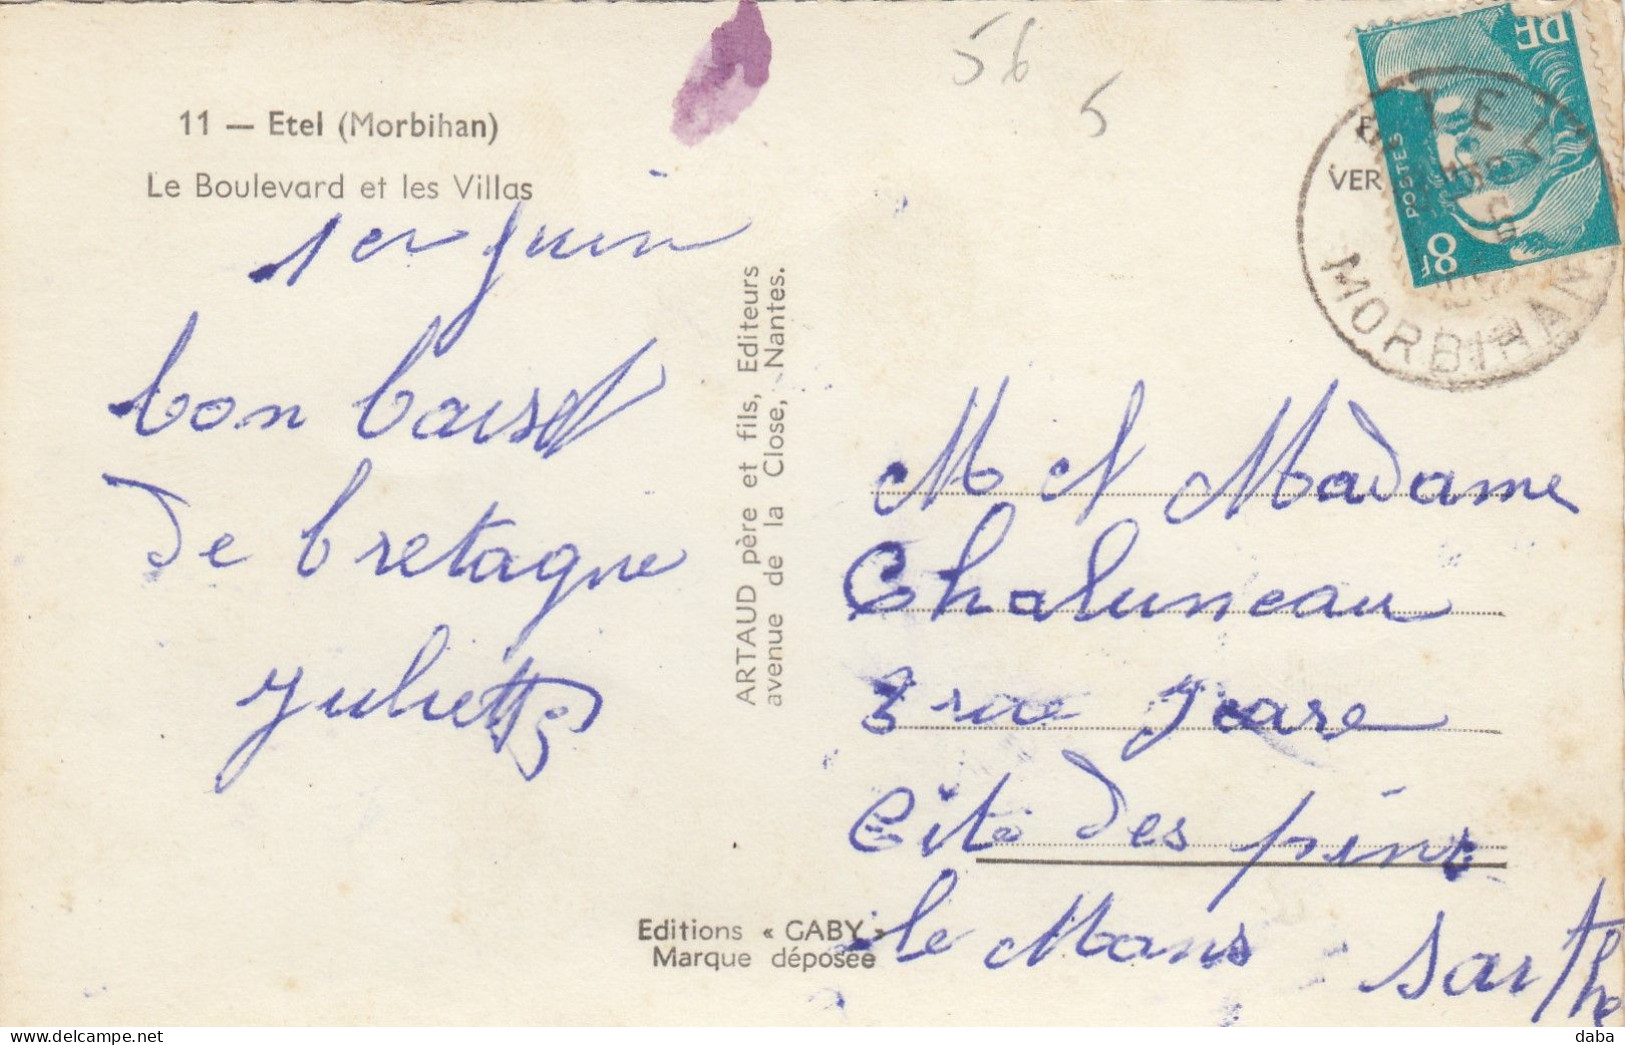 56
5
11 — Etel (Morbihan)
Le Boulevard et les Villas
1er juin
bon baiser
de bretagne
juliette
ARTAUD père et fils, Editeurs
avenue de la Close, Nantes.
Editions « GABY »
Marque déposée
DE
POSTES
8F
VER
ETEL
MORBIHAN
M et Madame
Chaluneau
3 rue
Cité des pins
le Mans Sarthe
daba